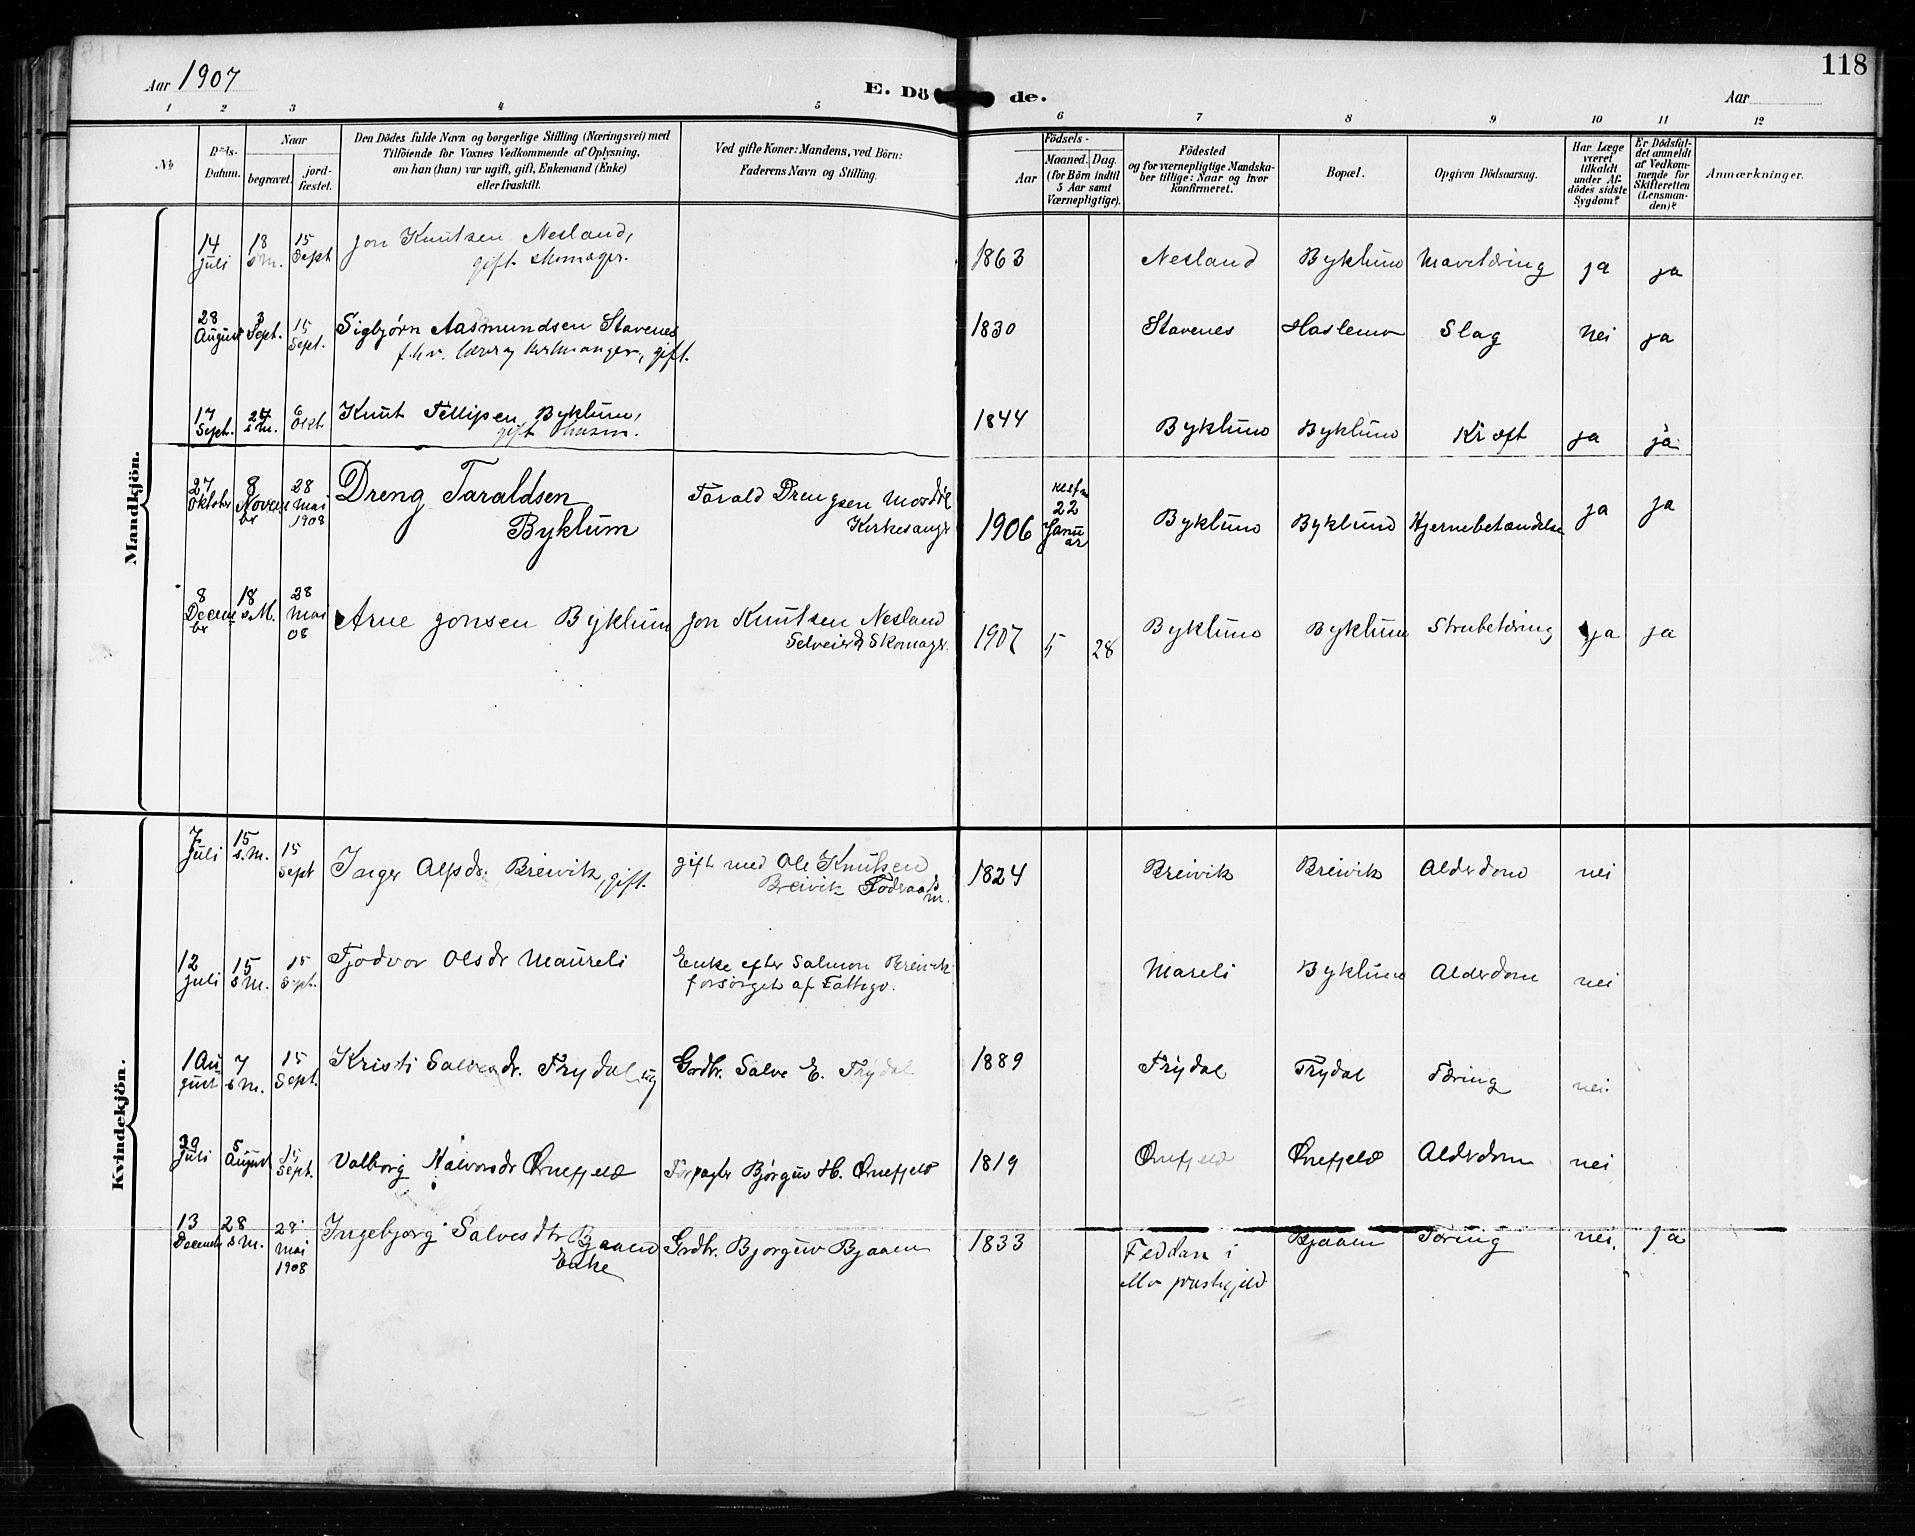 118
Aar 1907
E. Dö de.
Aar
1 2 3 4 5 6 7 8 9 10 11 12
No
Döds-
Datum.
Naar
begravet.
jord-
fæstet.
Den Dödes fulde Navn og borgerlige Stilling (Næringsvei) med
Tilföiende for Voxnes Vedkommende af Oplysning,
om han (hun) var ugift, gift, Enkemand (Enke)
eller fraskilt.
Ved gifte Koner: Mandens, ved Börn:
Faderens Navn og Stilling.
Födsels-
Aar
Maaned. Dag.
(for Börn indtil
5 Aar samt
Værnepligtige).
Födested
og for værnepligtige Mandska-
ber tillige: Naar og hvor
konfirmeret.
Bopæl.
Opgiven Dödsaarsag.
Har Læge
været
tilkaldt
under Af-
dödes sidste
Sygdom?
Er Dödsfal-
det anmeldt
af Vedkom-
mende for
Skifteretten
(Lensman-
den)?
Anmærkninger.
Mandkjön.
14 juli 18 s M. 15 Sept Jon Knutsen Nesland,
gift skomager. 1863 Nesland Byklum Mavetæring ja ja
28 August 3 Sept. 15 Sept. Sigbjørn Aasmundsen Stavenes
f.h.v. lærer og kirkesanger, gift. 1830 Stavenes Haslemo Slag Nei ja
17 Sept. 27 s.M. 6 Okt Knut Fellipsen Byklum,
gift 1844 Byklum Byklum Kræft ja ja
27 Oktober 8 Novem
ber 28 Mai 1908 Dreng Taraldsen
Byklum Tarald Drengsen Mosdøl
Kirkesangr 1906 22
Janu
ar Byklum Byklum Hjernebetændelse ja ja
8 Decem
br 18 s.M. 28 Mai 08 Arne Jonsen Byklum Jon Knutsen Nesland
Selveier & Skomagr. 1907 5 28 Byklum Byklum Strubetæring ja ja
Kvindekjön.
7 Juli 15 s.M. 15 Sept Inger Alfsdr. Breivik, gift. gift med Ole Knutsen
Breivik Föderaads
m. 1824 Breivik Breivik Alderdom nei
12 juli 15 s M. 15 Sept. Tjodvor Olsdr Maureli Enke efter Salmon Breivik
forsörget af Fattigv. Mareli Byklum Alderdom nei
1 Au
gust 7 s M. 15 Sept. Kristi Salvesdr. Trydal ug Grdbr. Salve E. Trydal 1889 Trydal Trydal Tæring nei.
29 Juli 5 August 15 Sept. Valborg Halvorsdr Ørnefjeld Forpagter Bjørguv H. Ørnefjeld 1819 Ørnefjeld Ørnefjeld Alderdom nei
13 Decembr 28 s M. 28 Mai 1908 Ingebjorg Salvesdtr Bjaaen
Enke Grdbr. Bjorguv Bjaaen 1833 Feddan i
Mo prestegjeld Bjaaen Tæring nei. ja